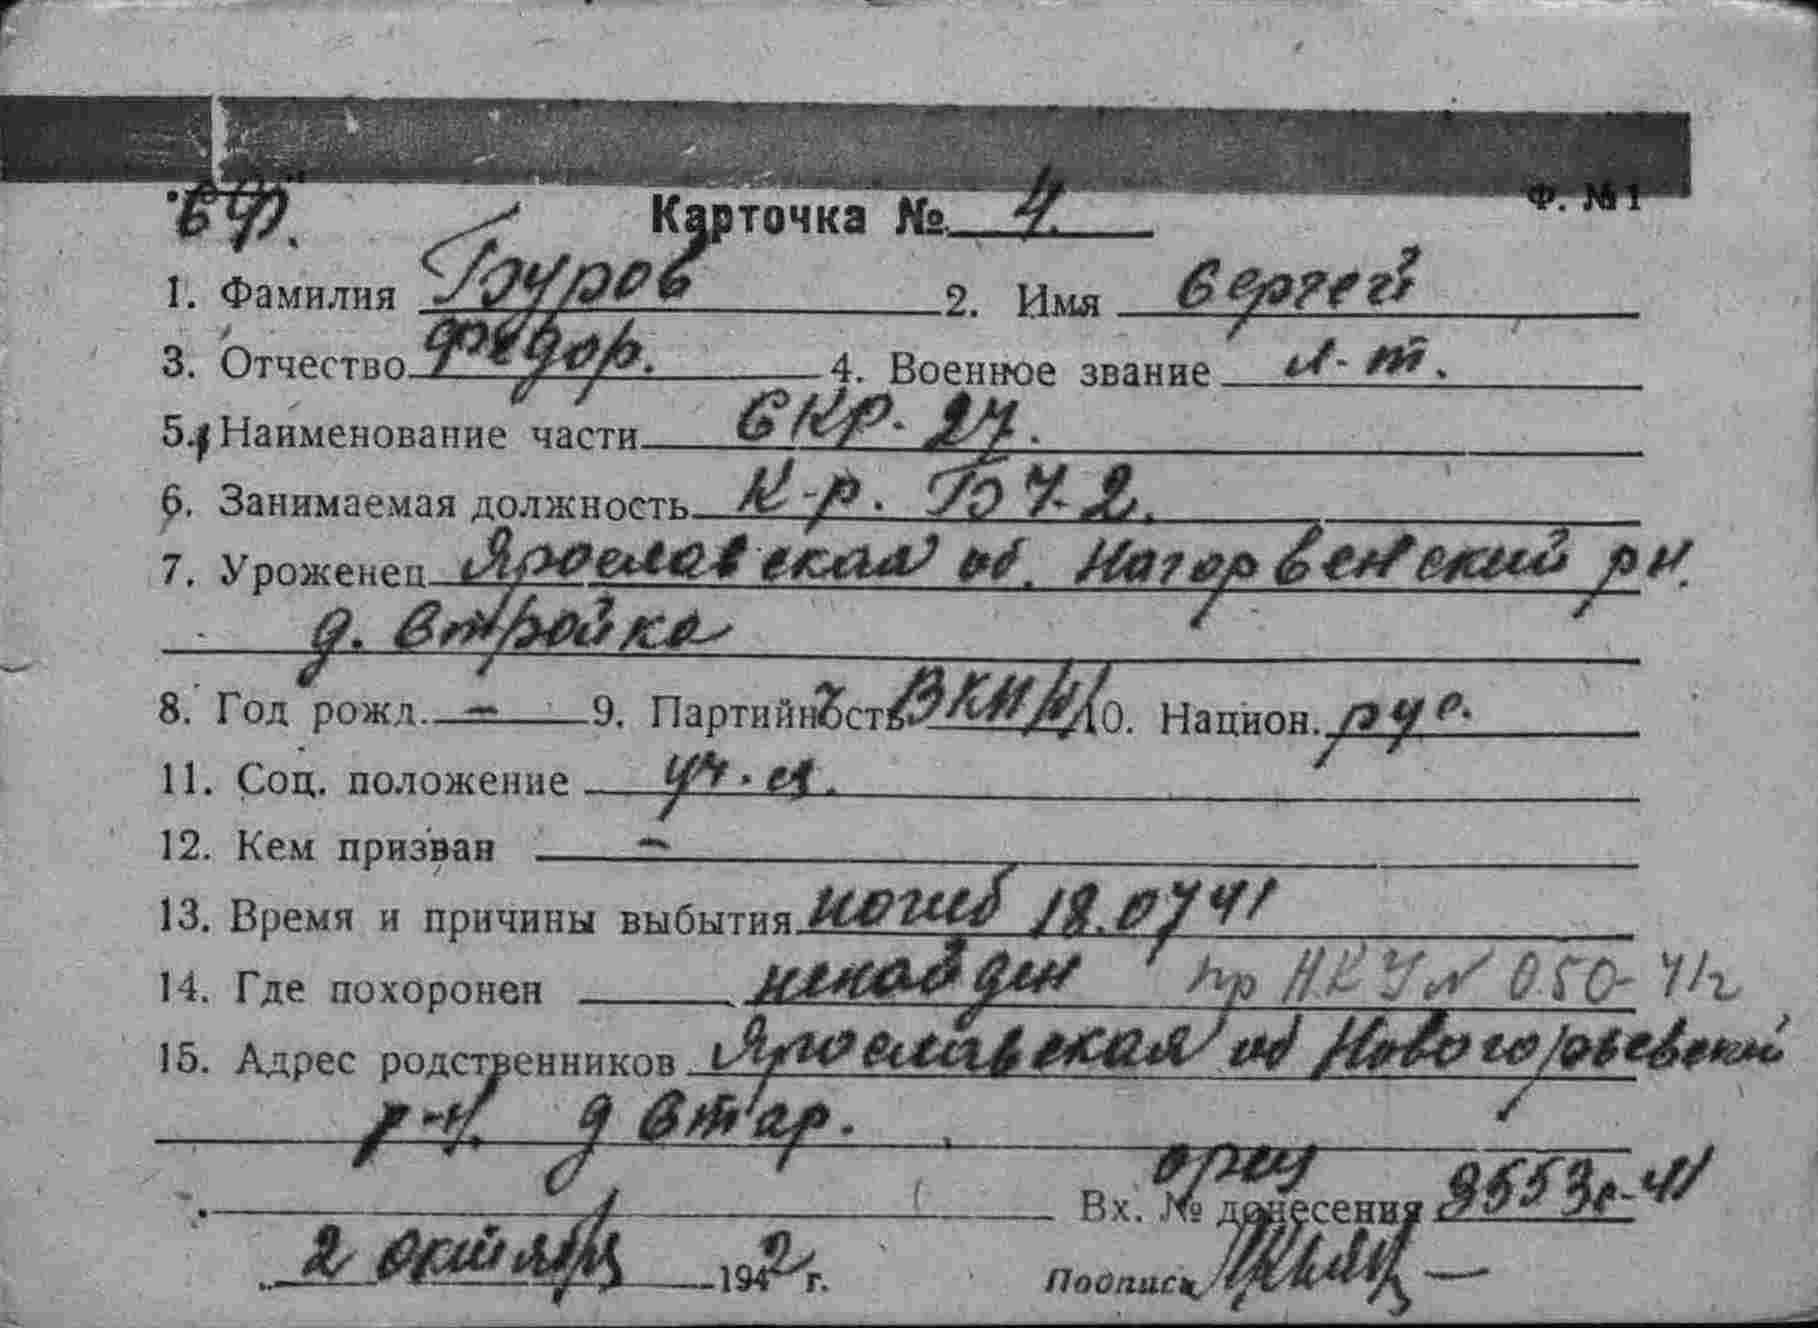 Ф. №1
"СФ".
Карточка № 4.
1. Фамилия Буров 2. Имя Сергей
3. Отчество Федор. 4. Военное звание л-т.
5. Наименование части СКР-27.
6. Занимаемая должность К-р. БЧ-2.
7. Уроженец Ярославская об. Нагорвенский рн.
д. Стройка
8. Год рожд. — 9. Партийность ВКП/б/ 10. Национ. рус.
11. Соц. положение уч-ся.
12. Кем призван —
13. Время и причины выбытия погиб 18.07 41
14. Где похоронен ненайден пр НКУ N 050-41г
15. Адрес родственников Ярославская об Новогорьевский
р-н. д Стар.
Вх. № донесения 9553с-41
2 октября 1942 г. Подпись